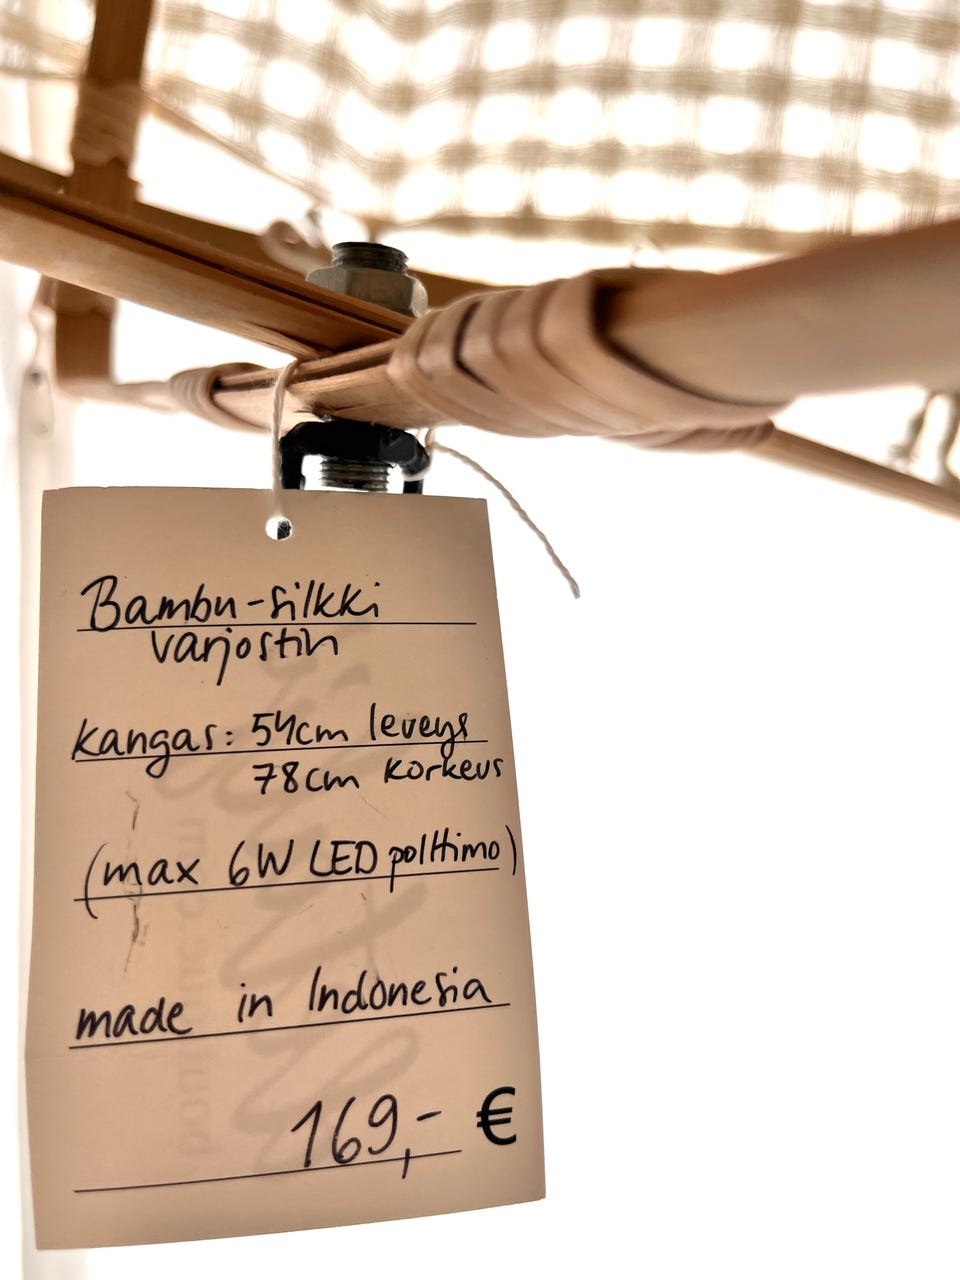 Bambu-silkki
varjostin
kangas: 54cm leveys
78cm korkeus
(max 6W LED polttimo)
made in Indonesia
169,- €